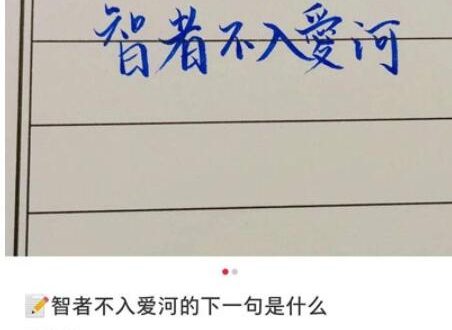 智者不入愛河
📝智者不入爱河的下一句是什么